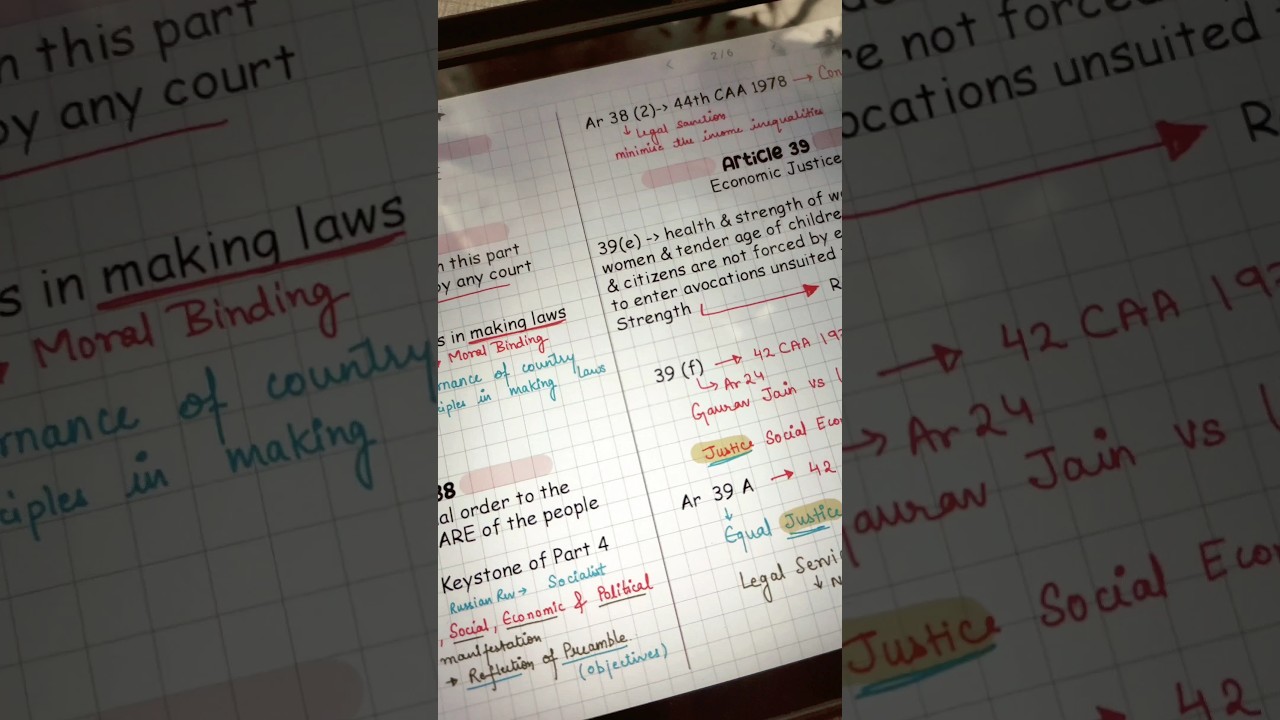 2/6
n this part
by any court
s in making laws
Moral Binding
rnance of country
ciples in making Laws
38
al order to the
ARE of the people
Keystone of Part 4
Russian Rev → Socialist
, Social, Economic & Political
manifestation
→ Reflection of Preamble
(objectives)
Ar 38 (2)-> 44th CAA 1978 → Con
↓ Legal sanction
minimise the income inequalities
Article 39
Economic Justice
39(e) -> health & strength of w
women & tender age of childre
& citizens are not forced by e
to enter avocations unsuited
Strength → R
39 (f) → 42 CAA 197
↳ Ar 24
Gaurav Jain vs U
Justice Social Eco
Ar 39 A → 42
↓
Equal Justice
Legal Servi
↓ N